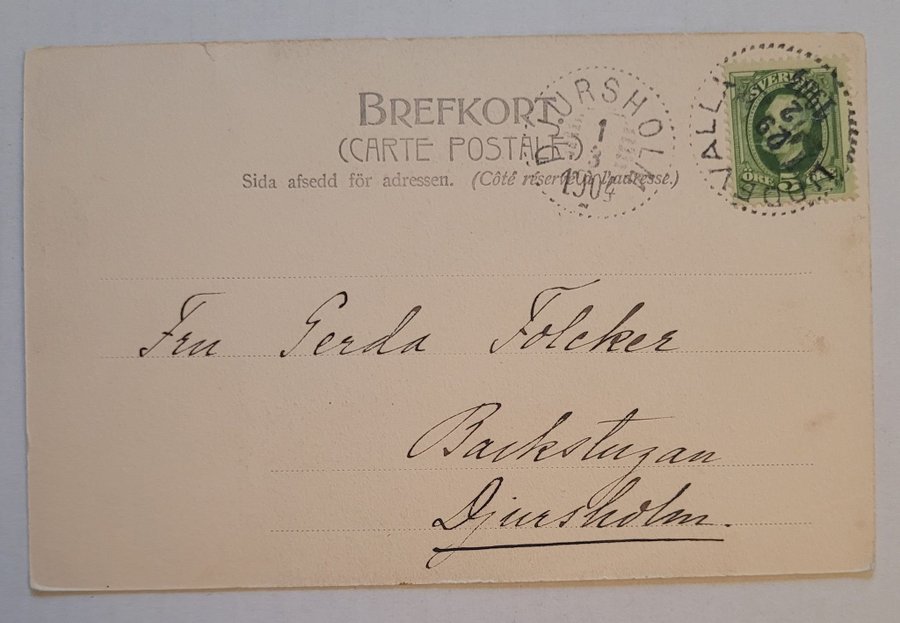 BREFKORT
(CARTE POSTALE)
Sida afsedd för adressen. (Côté réservé à l'adresse.)
DJURSHOLM
1
3
1904
SVERIGE
5
ÖRE
UDDEVALLA
29
2
Fru Gerda Folcker
Backstugan
Djursholm.